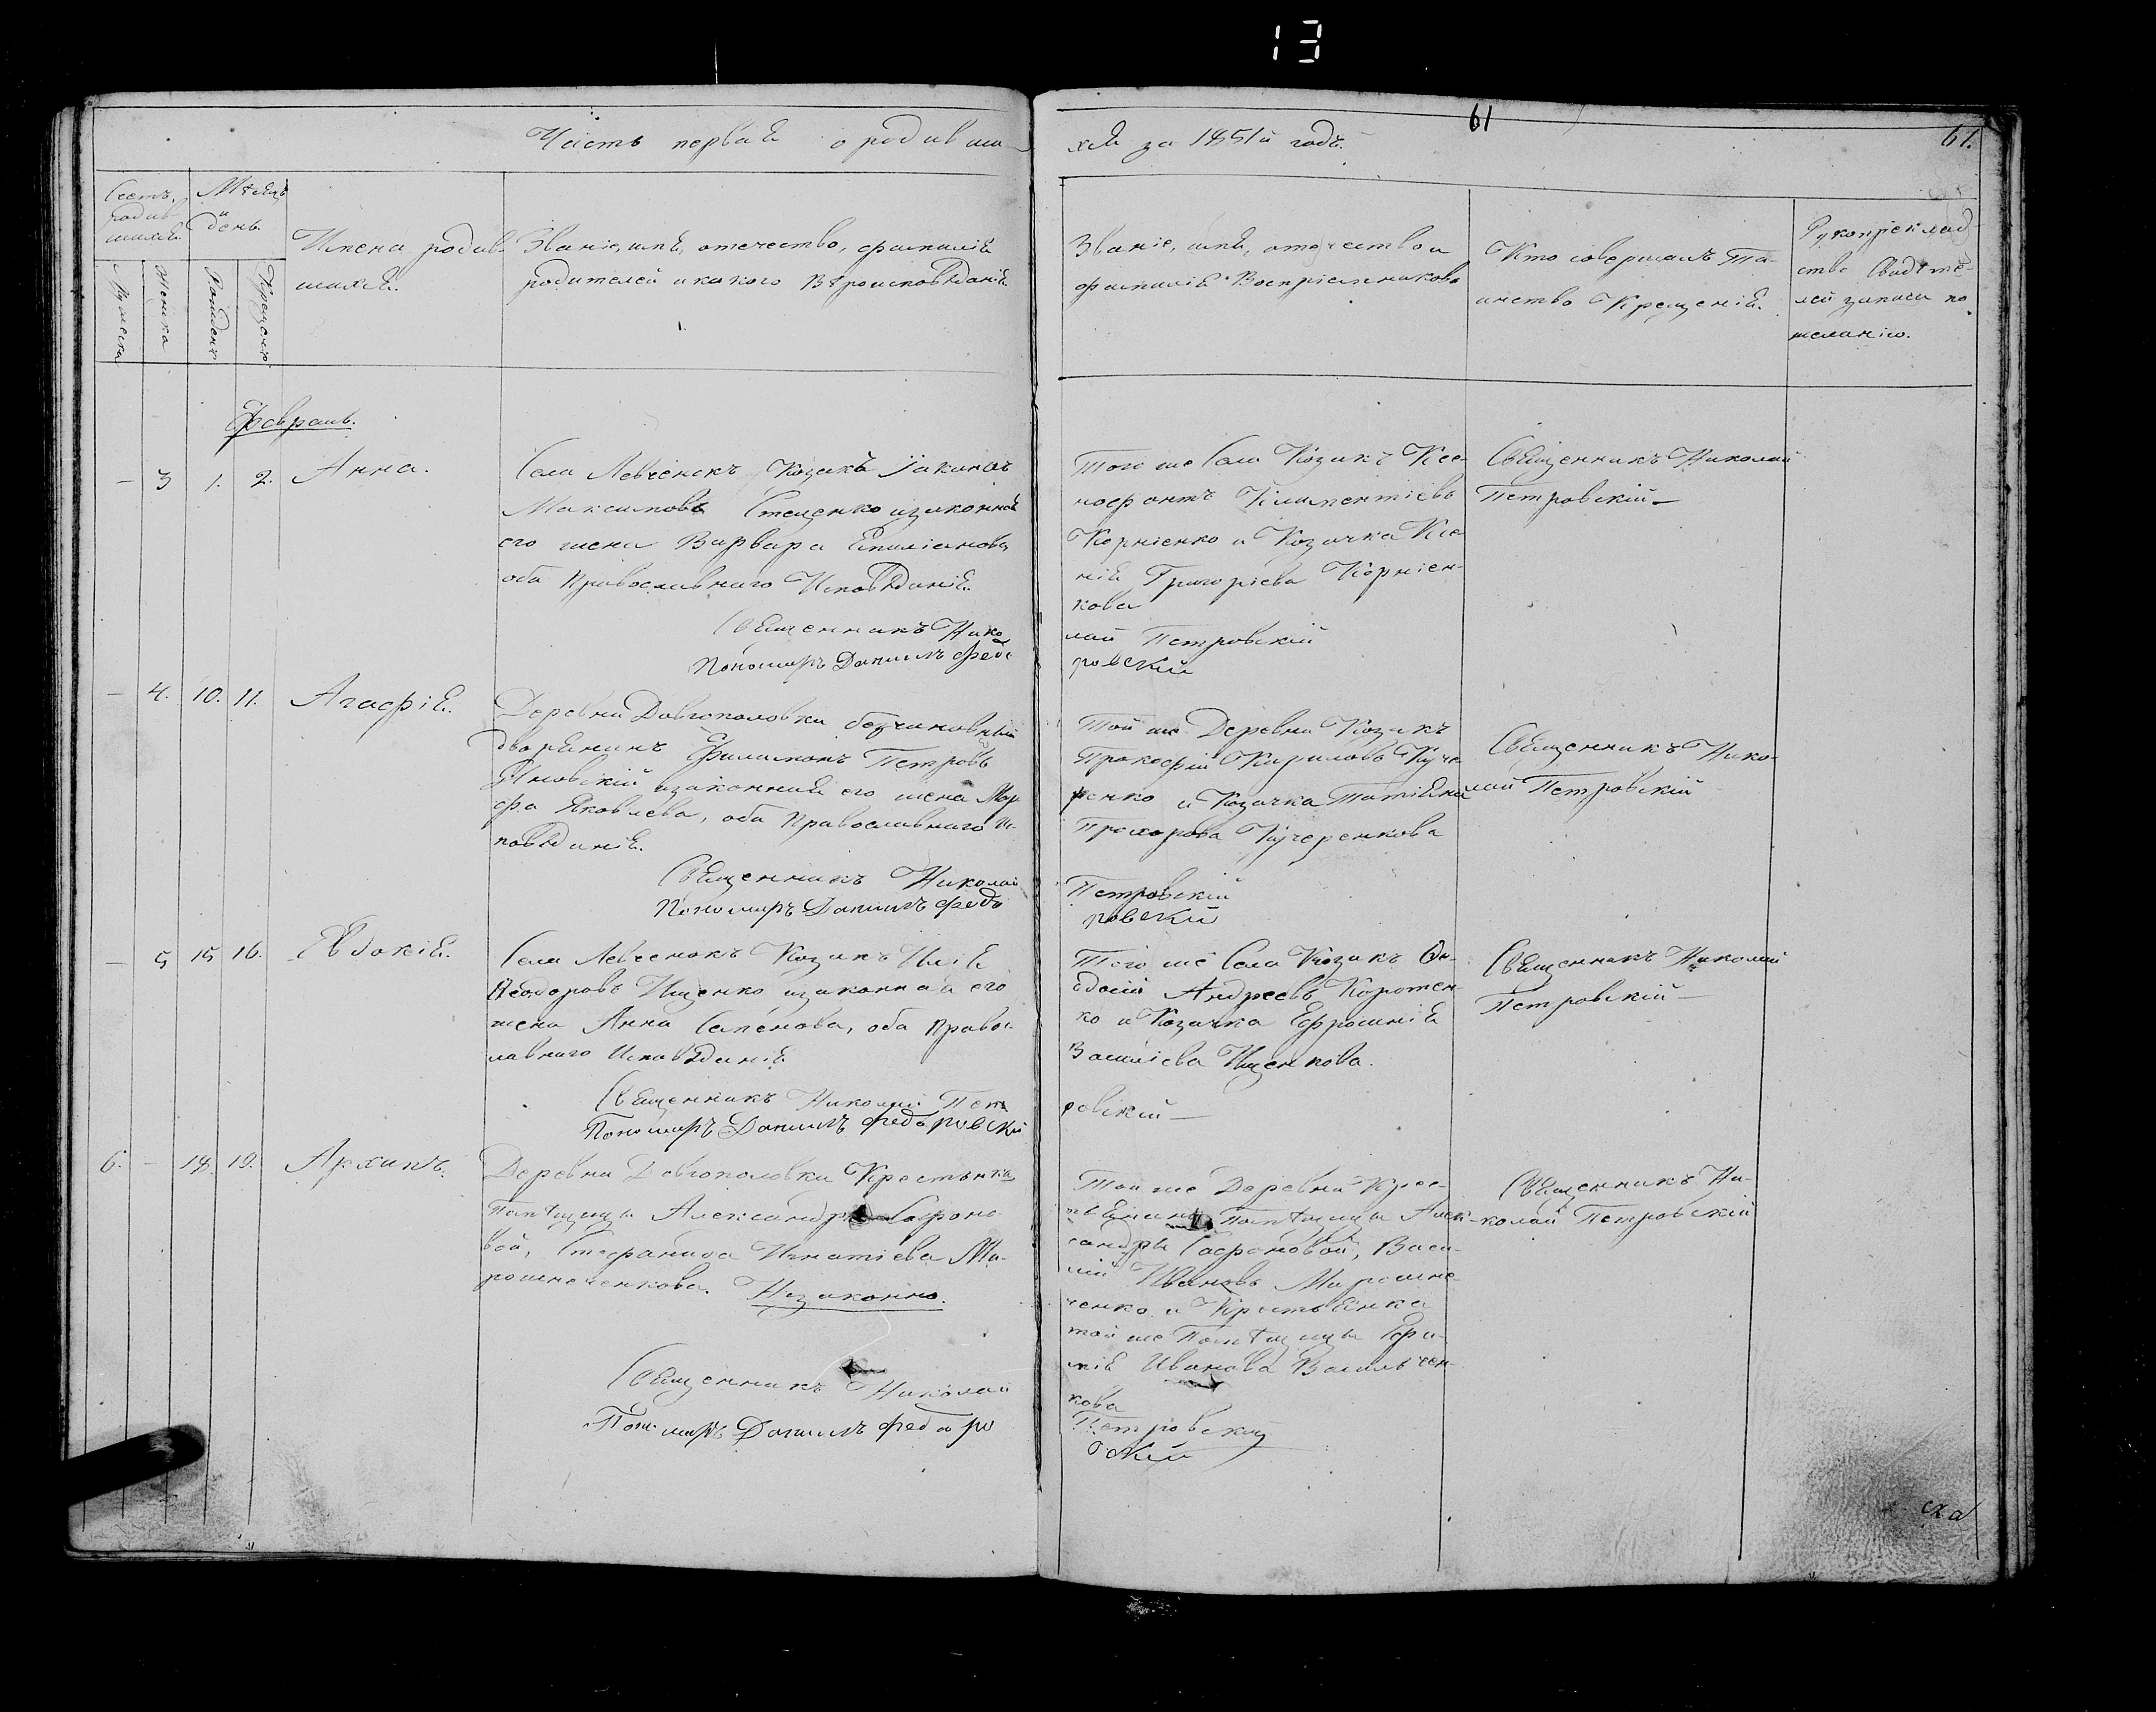 13
61
61.
Часть первая о родивши-
хся за 1851й годъ.
Счетъ родив-
шихся.
Мѣсяцъ
и
день.
Мужеска
Женска
Рожденiя
Крещенiя
Имена родив-
шихся.
Званiе, имя, отечество, фамилiя
родителей и какого Вѣроисповѣданiя
Званiе, имя, отечество и
фамилiя Воспрiемниковъ
Кто совершалъ Та-
инство Крещенiя.
Рукоприклад-
ство Свидѣте-
лей записи по
желанiю.
Февраль.
— 3 1. 2. Анна.
Села Левченокъ Козакъ Iакинфъ
Максимовъ Стеценко изаконная
его жена Варвара Емилiанова
оба Православнаго Исповѣданiя.
Священникъ Нико
Пономарь Данiилъ Федо
Того же Села Козакъ Ксе-
нофонтъ Климентiевъ
Корнiенко и Козачка Ксе-
нiя Григорiева Корнiен-
кова
лай Петровскiй
ровскiй
Священникъ Николай
Петровскiй—
— 4. 10. 11. Агафiя.
Деревни Довгополовки безчиновный
дворянинъ Филимонъ Петровъ
Яновскiй изаконная его жена Мар
фа Яковлева, оба Православнаго Ис-
повѣданiя.
Священникъ Николай
Пономарь Данiилъ Федо
Той же Деревни Козакъ
Прокофiй Кириловъ Куче
ренко и Козачка Татiяна
Прохорова Кучеренкова
Петровскiй
ровскiй
Священникъ Нико-
лай Петровскiй
— 5 15 16. Евдокiя.
Села Левченокъ Козакъ Илiя
Ѳеодоровъ Ищенко изаконная его
жена Анна Саменова, оба Правос-
лавнаго Исповѣданiя
Священникъ Николай Пет
Пономарь Данiилъ Федоровскiй
Того же Села Козакъ
Андреевъ Коротен-
ко и Козачка Ефросинiя
Василiева Ищенкова.
ровскiй—
Священникъ Николай
Петровскiй—
6. — 18. 19. Архипъ.
Деревни Довгополовки Крестьянка
Помѣщицы Александры Сафоно
вой, Стефанида Игнатiева Ми-
рошниченкова. Незаконно.
Священникъ Николай
Пономарь Данiилъ Федоро
Той же Деревни Крес-
тьянинъ Помѣщицы Алек-
сандры Сафоновой, Васи-
лiй Ивановъ Мирошни-
ченко и Крестьянка
той же Помѣщицы Ефи-
мiя Иванова Васильчен-
кова
Петровскiй
вскiй
Священникъ Ни-
колай Петровскiй